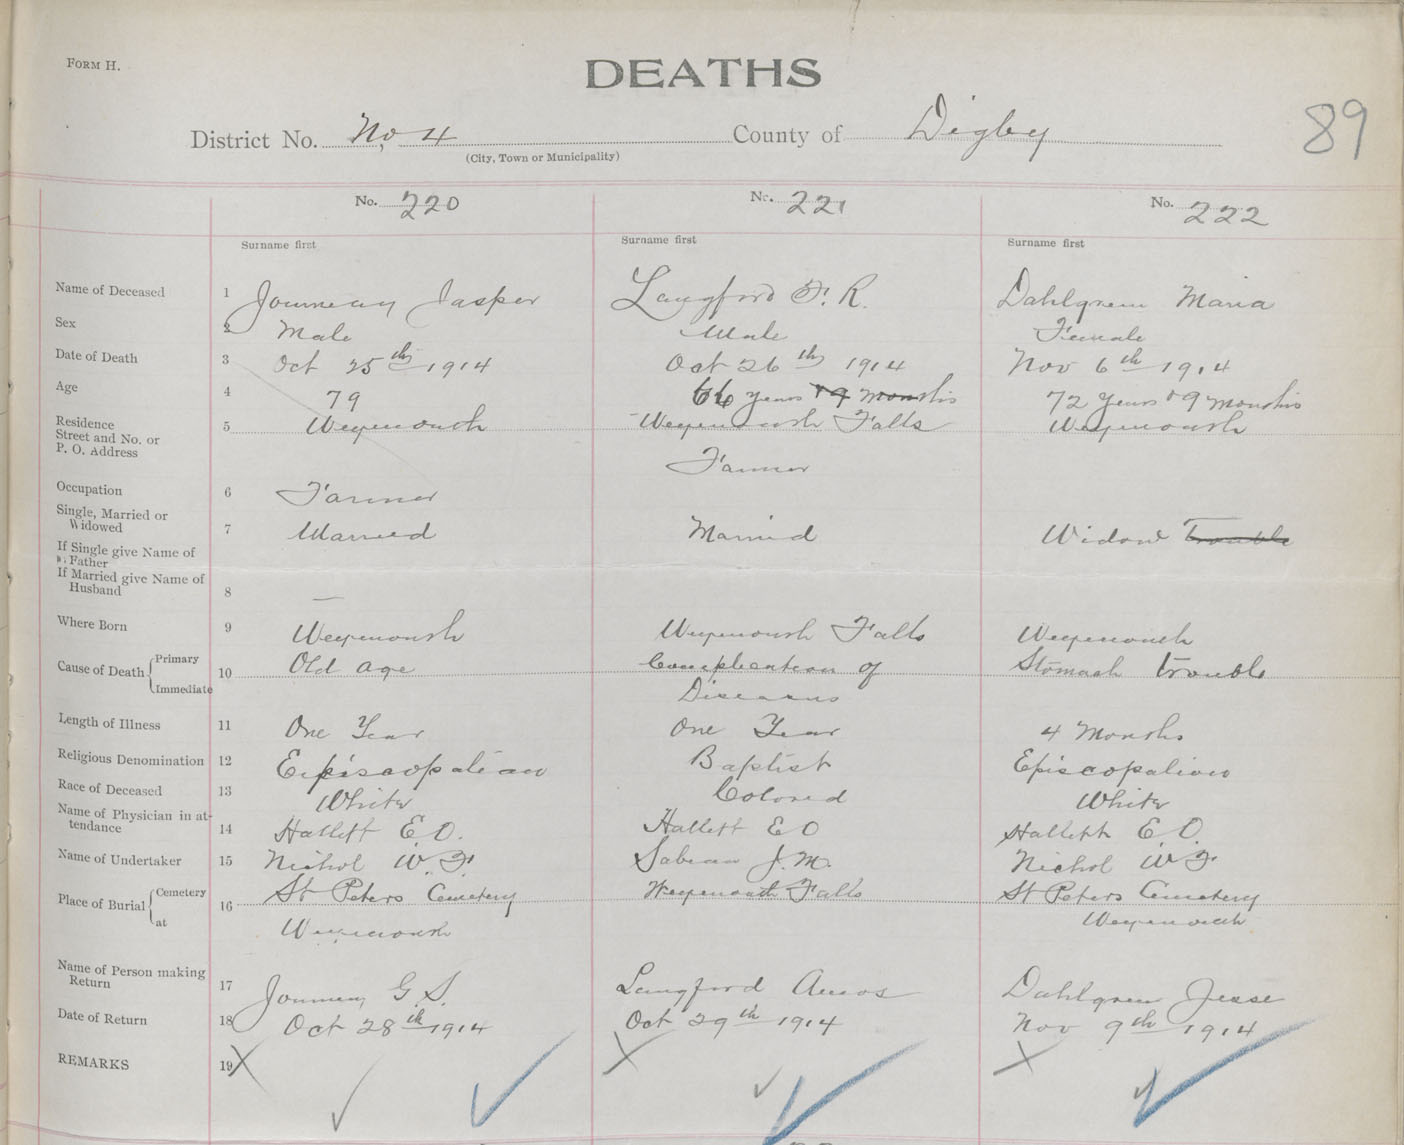 FORM H.
DEATHS
89
District No. No. 4 County of Digby
(City, Town or Municipality)
No. 220 No. 221 No. 222
Surname first Surname first Surname first
Name of Deceased 1 Journeay Jasper Langford F. R. Dahlgren Maria
Sex 2 Male Male Female
Date of Death 3 Oct 25th 1914 Oct 26th 1914 Nov 6th 1914
Age 4 79 66 years & 9 months 72 years & 9 months
Residence
Street and No. or
P. O. Address
5 Weymouth Weymouth Falls Weymouth
Occupation 6 Farmer Farmer
Single, Married or
Widowed
7 Married Married Widow trouble
If Single give Name of
Father
If Married give Name of
Husband
8 —
Where Born 9 Weymouth Weymouth Falls Weymouth
Cause of Death Primary
Immediate
10 Old age Complication of Stomach trouble
Diseases
Length of Illness 11 One Year One Year 4 Months
Religious Denomination 12 Episcopalian Baptist Episcopalian
Race of Deceased 13 White Colored White
Name of Physician in at-
tendance
14 Hallett E. O. Hallett E O Hallett E. O.
Name of Undertaker 15 Nichol W. F. Sabean J. M. Nichol W F
Place of Burial Cemetery
at
16 St Peters Cemetery Weymouth Falls St Peters Cemetery
Weymouth Weymouth
Name of Person making
Return
17 Journeay G. S. Langford Amos Dahlgren Jesse
Date of Return 18 Oct 28th 1914 Oct 29th 1914 Nov 9th 1914
REMARKS 19